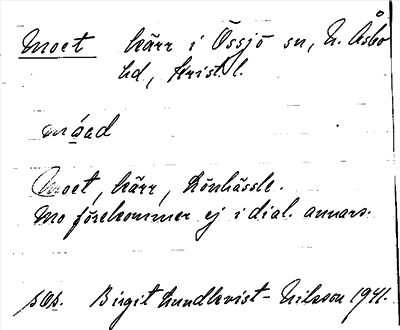 Moet kärr i Össjö sn, N. Åsbo
hd, Krist. l.
móad
Moet, kärr, Lönhässle.
Mo förekommer ej i dial. annars.
sες. Birgit Lundkvist-Nilsson 1941.